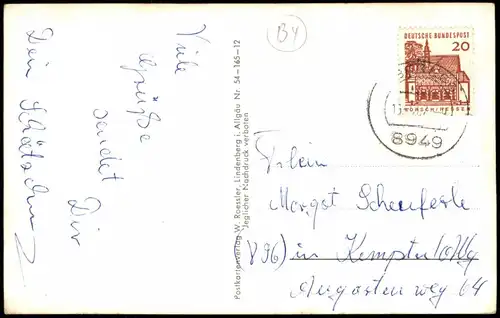 Viele
Grüße
sendet
Dir
Dein
By
Postkartenverlag W. Roessler, Lindenberg i. Allgäu Nr. 54-165-12
Jeglicher Nachdruck verboten
DEUTSCHE BUNDESPOST
20
LORSCH/HESSEN
8949
Frlein
Margot Scheuferle
896) in Kempten/Allg
Augartenweg 64